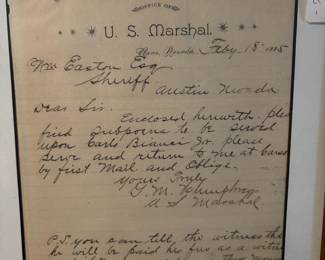 OFFICE OF
U. S. Marshal.
Nevada Feby 18
Wm Easton Esq
Sheriff
Austin Nevada
Dear Sir.
Enclosed herewith please
find Subpoena to be served
upon Carlo Bianci Jr. please
serve and return to me at Carson
by first Mail and Oblige.
Yours Truly
Humphrey
U S Marshal
P.S. you can tell the witness that
he will be paid his fees as a witness